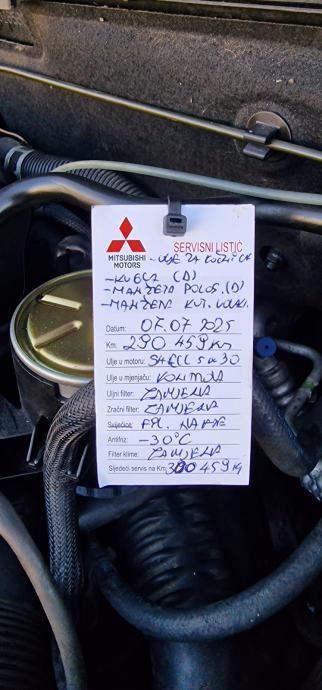 SERVISNI LISTIĆ
MITSUBISHI
MOTORS
- ULJE ZA KOČNICE
- KUGLA (D)
- MANŽETA POLOS. (D)
- MANŽETA
Datum: 07.07 2025
Km: 290 459 km
Ulje u motoru: SHELL 5W30
Ulje u mjenjaču: KONTROLA
Uljni filter: ZAMJENA
Zračni filter: ZAMJENA
Svijećice: FIL. NAFTE
Antifriz: -30°C
Filter klime: ZAMJENA
Sljedeći servis na Km: 300 459 km